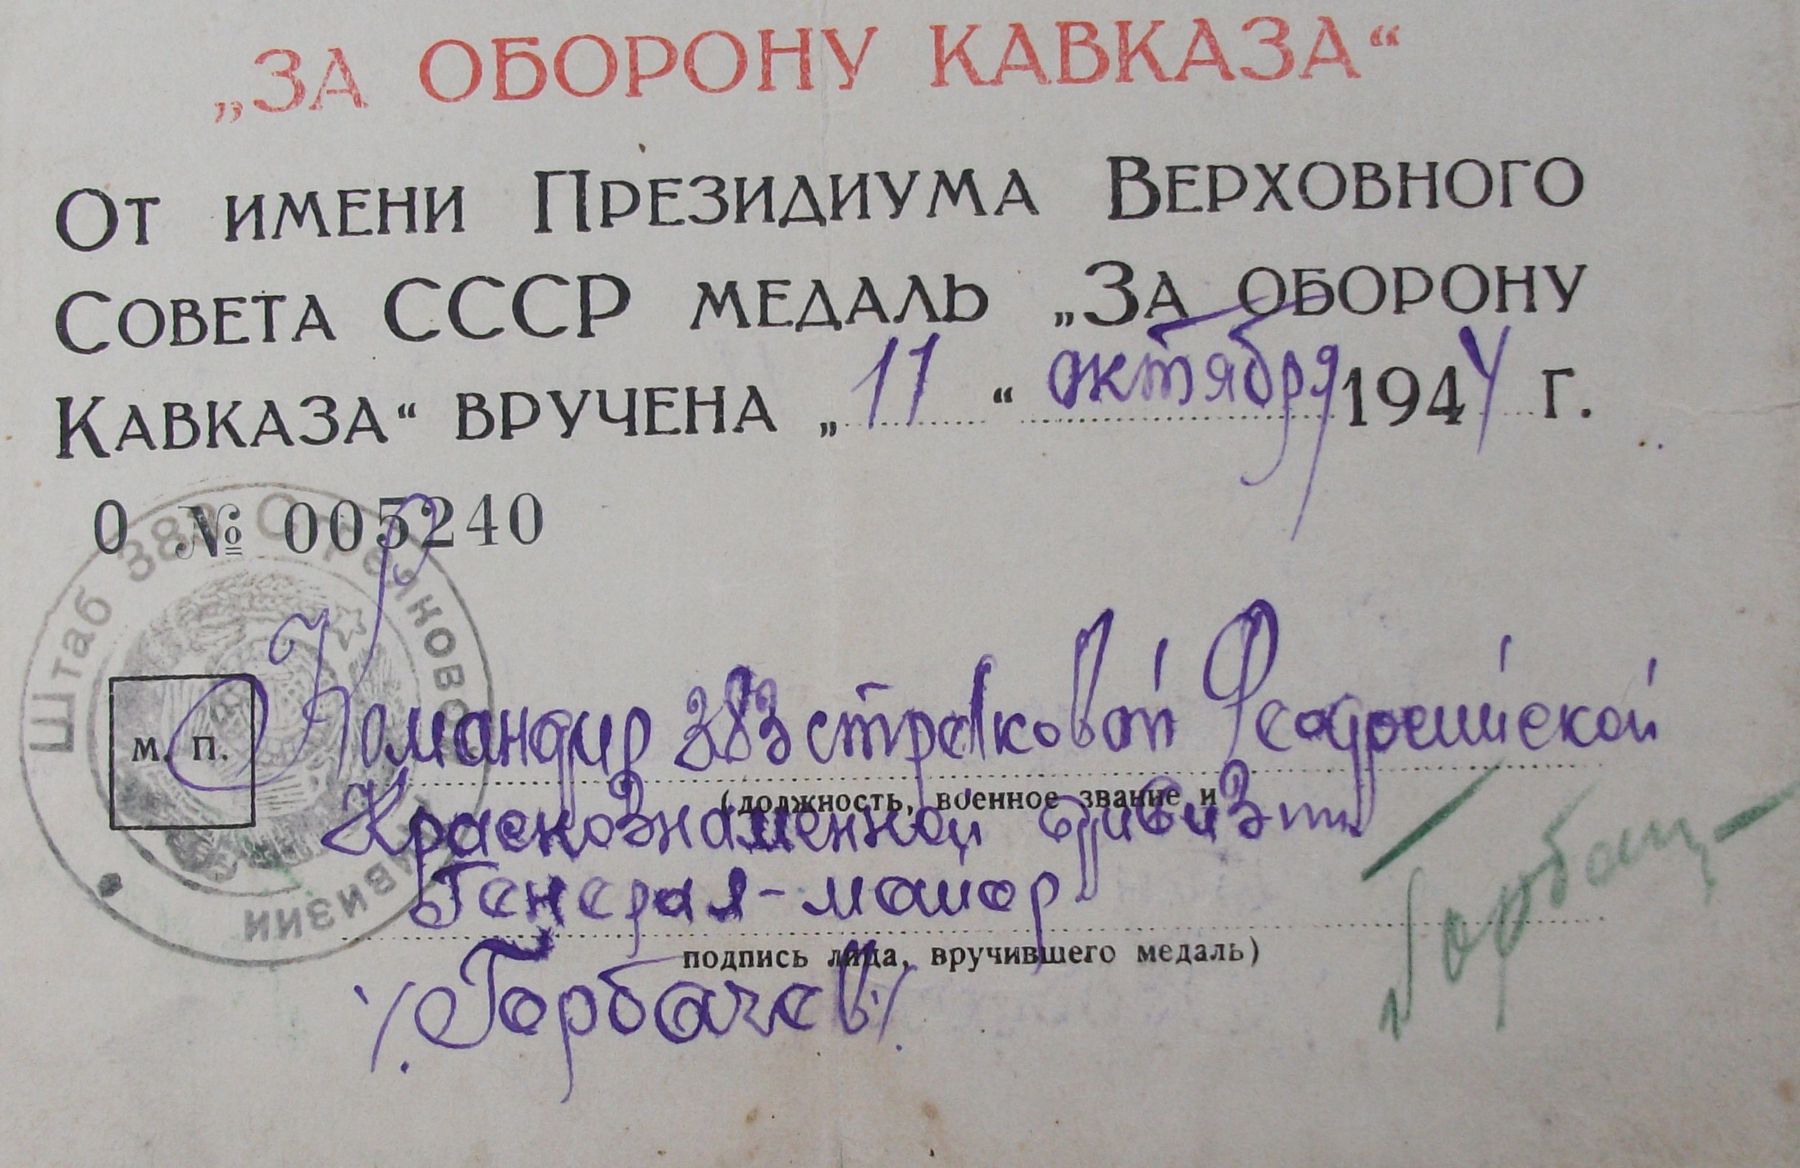 „ЗА ОБОРОНУ КАВКАЗА“
От имени Президиума Верховного
Совета СССР медаль „За оборону
Кавказа“ вручена „11“ октября 1944 г.
О № 005240
Штаб 383 Стрелковой Дивизии
М. П.
Командир 383 стрелковой Феодосийской
(должность, военное звание и
Краснознаменной дивизии
Генерал-майор
подпись лица, вручившего медаль)
/Горбачев/
Горбач